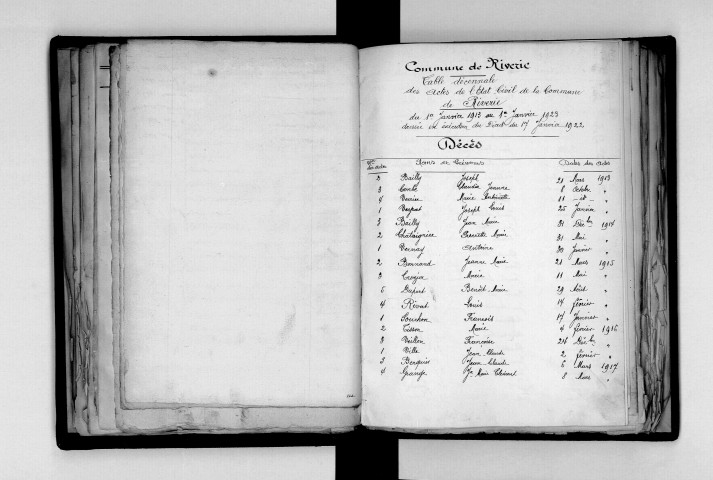 Commune de Riverie
Table décennale
des Actes de l'Etat Civil de la Commune
de Riverie
du 1er Janvier 1913 au 1er Janvier 1923
dressée en exécution du Décret du 17 Janvier 1922
Décès
Nos des actes Noms et Prénoms Dates des Actes
2 Bailly Joseph 21 Mars 1913
3 Claudia Jeanne 8 Octobre "
4 Marie Antoinette 11 - d -
1 Joseph Louis 25 Janvier "
3 Bailly Jean Marie 31 Déc. 1914
2 Chataignier Pierrette Marie 31 Mai "
1 Vernay Antoine 30 Janvier "
2 Bonnard Jeanne Marie 21 Mars 1915
3 Marie 11 Mai "
5 Benoît Marie 29 Août "
4 Louis 14 février "
1 Souchon François 17 Janvier "
2 Tisson Marie 4 février 1916
3 Françoise 24 Déc. "
1 Ville Jean Claude 2 février "
3 Jean Claude 5 Mars 1917
4 Grange 8 Mars "